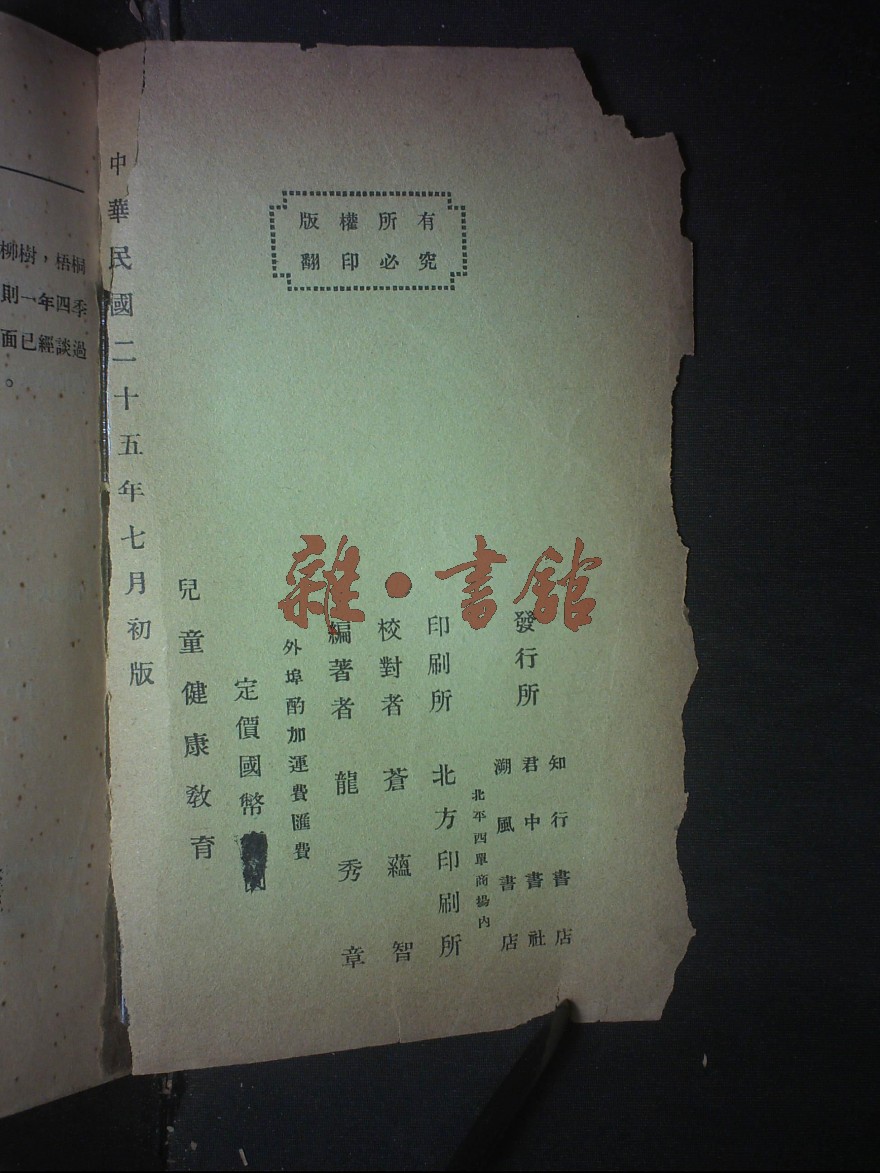 版權所有
翻印必究
發行所
知行書店
君中書社
溯風書店
北平西單商場內
印刷所 北方印刷所
校對者 蒼蘊智
編著者 龍秀章
外埠酌加運費匯費
定價國幣
兒童健康教育
中華民國二十五年七月初版
柳樹，梧桐
則一年四季
面已經談過
。
雜·書館